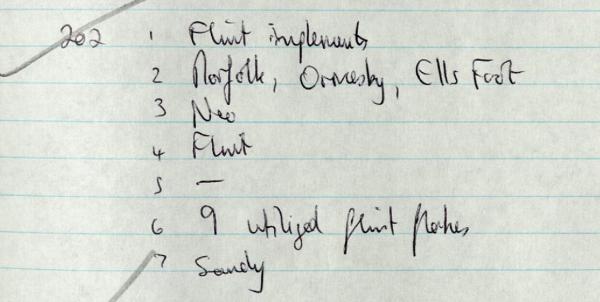 202 1 Flint implements
2 Norfolk, Ormesby, Ells Foot
3 Neo
4 Flint
5 —
6 9 utilized flint flakes
7 Sandy